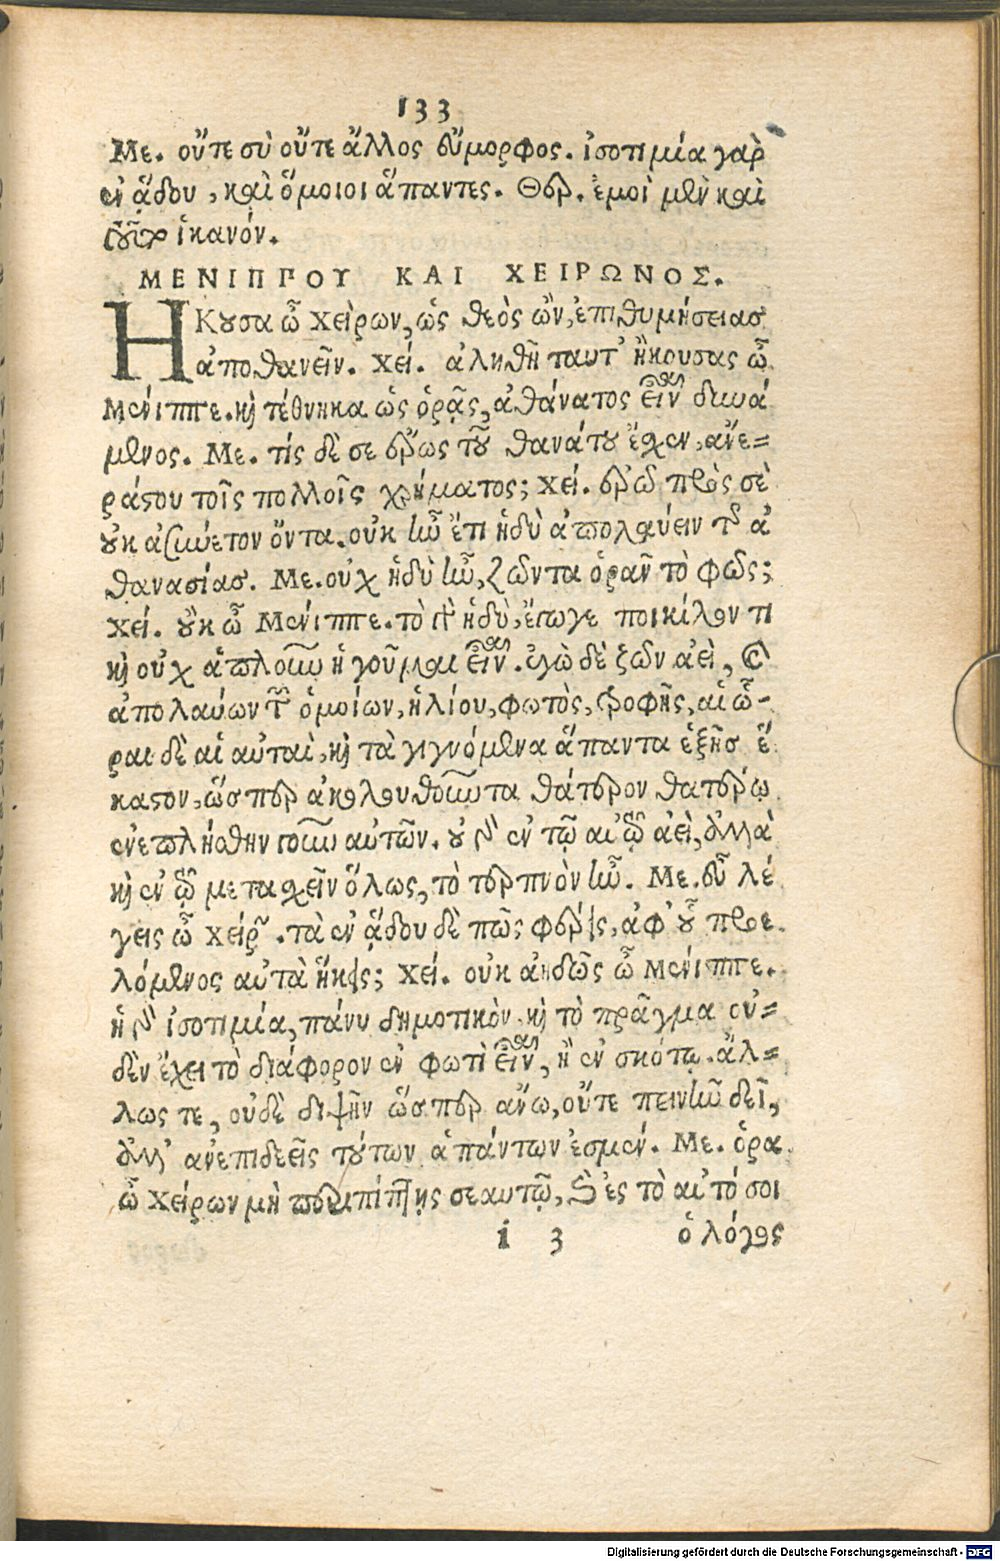 133
Με. οὔτε σὺ οὔτε ἄλλος εὔμορφος. ἰσοτιμία γὰρ
ἐν ᾅδου, καὶ ὅμοιοι ἅπαντες. Θερ. ἐμοὶ μὲν καὶ
τοῦτο ἱκανόν.
ΜΕΝΙΠΠΟΥ ΚΑΙ ΧΕΙΡΩΝΟΣ.
ΗΚουσα ὦ Χείρων, ὡς θεὸς ὢν, ἐπιθυμήσειας
ἀποθανεῖν. Χεί. ἀληθῆ ταυτ' ἤκουσας ὦ
Μένιππε. καὶ τέθνηκα ὡς ὁρᾷς, ἀθάνατος εἶναι δυνά
μενος. Με. τίς δὲ σε ἔρως τοῦ θανάτου ἔσχεν, ἀνε=
ράστου τοῖς πολλοῖς χρήματος; Χεί. ἐρῶ πρὸς σὲ
οὐκ ἀσύνετον ὄντα. οὐκ ἦν ἔτι ἡδὺ ἀπολαύειν τῆς ἀ
θανασίας. Με. οὐχ ἡδὺ ἦν, ζῶντα ὁρᾶν τὸ φῶς;
Χεί. οὔκ ὦ Μένιππε. τὸ γὰρ ἡδὺ, ἔγωγε ποικίλον τι
καὶ οὐχ ἁπλοῦν ἡγοῦμαι εἶναι. ἐγὼ δὲ ζῶν ἀεὶ, καὶ
ἀπολαύων τῶν ὁμοίων, ἡλίου, φωτὸς, τροφῆς, αἱ ὧ-
ραι δὲ αἱ αὐταὶ, καὶ τὰ γιγνόμενα ἅπαντα ἑξῆς ἕ
καστον, ὥσπερ ἀκολουθοῦντα θάτερον θατέρῳ
ἐνεπλήσθην γοῦν αὐτῶν. οὐ γὰρ ἐν τῷ αὐτῷ ἀεὶ, ἀλλὰ
καὶ ἐν τῷ μετασχεῖν ὅλως, τὸ τερπνὸν ἦν. Με. εὖ λέ
γεις ὦ Χείρων. τὰ ἐν ᾅδου δὲ πῶς φέρεις, ἀφ' οὗ προε
λόμενος αὐτὰ ἥκεις; Χεί. οὐκ ἀηδῶς ὦ Μένιππε.
ἡ γὰρ ἰσοτιμία, πάνυ δημοτικὸν. καὶ τὸ πρᾶγμα οὐ=
δὲν ἔχει τὸ διάφορον ἐν φωτὶ εἶναι, ἢ ἐν σκότῳ. ἄλ=
λως τε, οὐδὲ διψῆν ὥσπερ ἄνω, οὔτε πεινῆν δεῖ,
ἀλλ' ἀνεπιδεεῖς τούτων ἁπάντων ἐσμέν. Με. ὅρα
ὦ Χείρων μὴ περιπίπτῃς σεαυτῷ, καὶ ἐς τὸ αὐτό σοι
i 3 ὁ λόγος
Digitalisierung gefördert durch die Deutsche Forschungsgemeinschaft - DFG